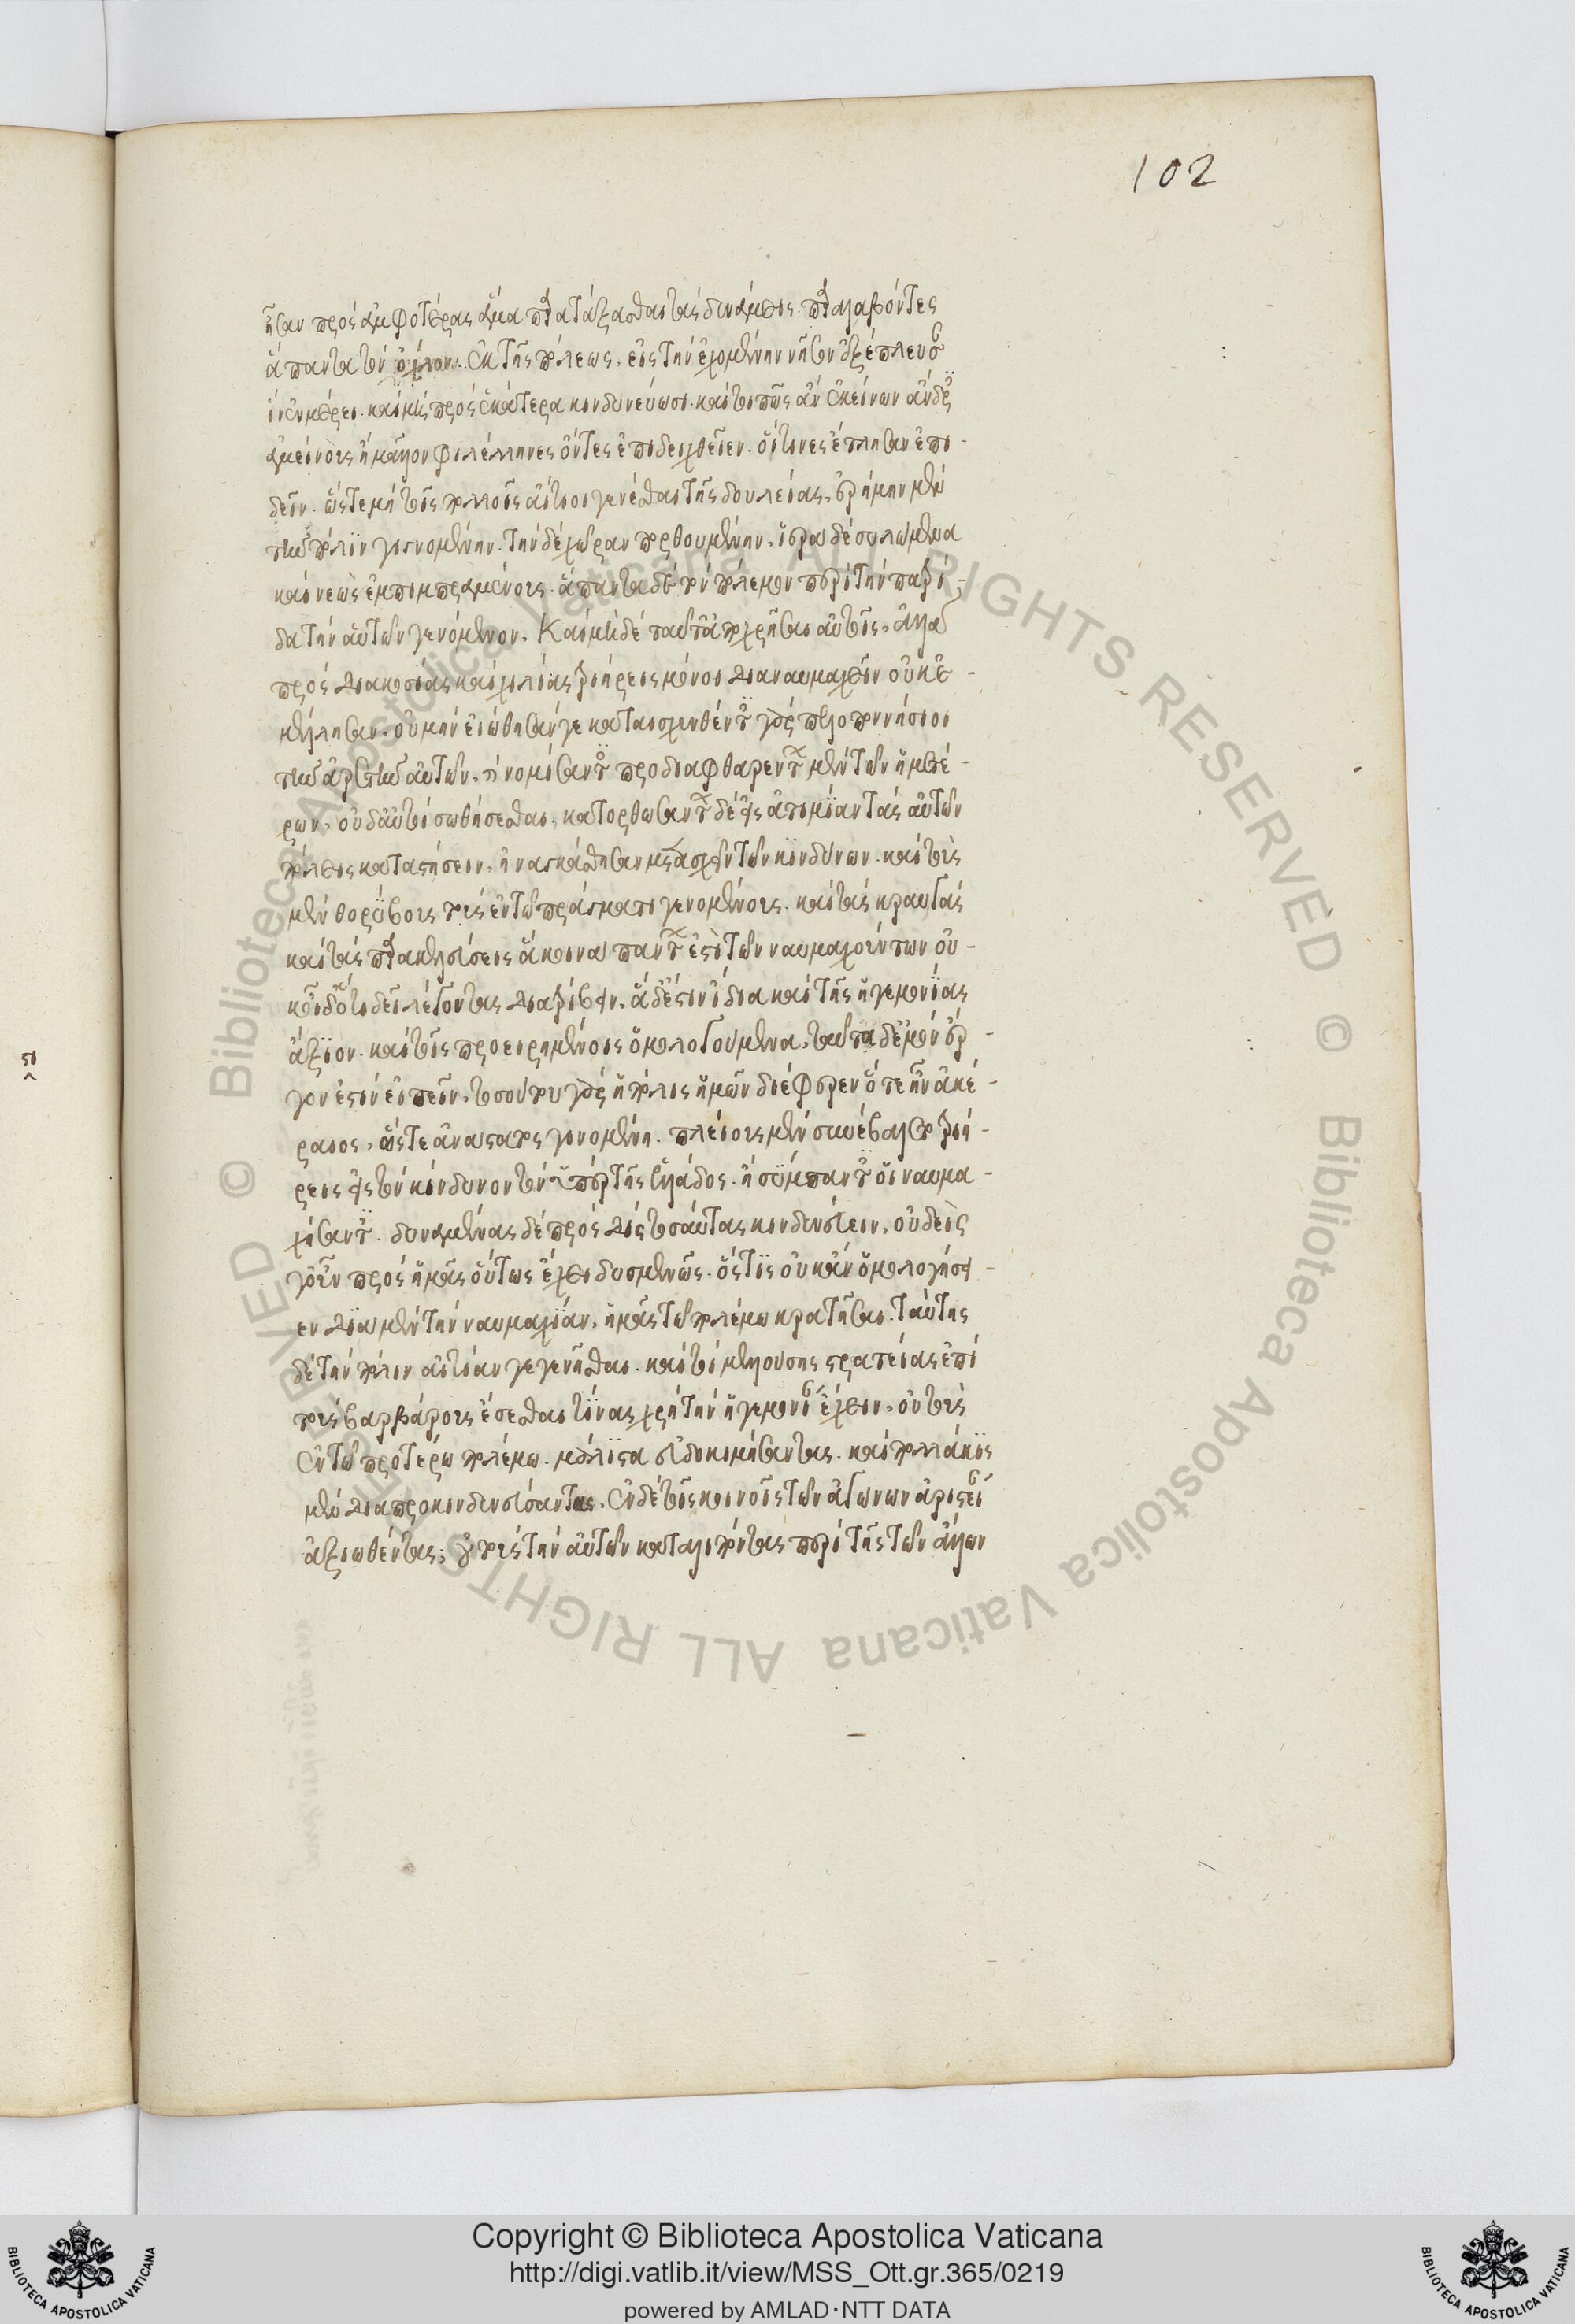 ἦσαν πρὸς ἀμφοτέρας ἅμα παρατάξασθαι τὰς δυνάμεις. παραλαβόντες
ἅπαντα τὸν ὄχλον. ἐκ τῆς πόλεως, εἰς τὴν ἐχομένην νῆσον ἐξέπλευσαν
ἵν ἐν μέρει. καὶ μὴ πρὸς ἑκάτερα κινδυνεύωσι. καίτοι πῶς ἂν ἐκείνων ἄνδρες
ἀμείνους ἢ μᾶλλον φιλέλληνες ὄντες ἐπιδειχθεῖεν. οἵτινες ἔτλησαν ἐπι-
δεῖν. ὥστε μὴ τοῖς πολλοῖς αἴτιοι γενέσθαι τῆς δουλείας, ἐρήμην μὲν
τὴν πόλιν γιγνομένην. τὴν δὲ χώραν πορθουμένην, ἱερὰ δὲ συλώμενα
καὶ νεὼς ἐμπιμπραμένους. ἅπαντα δὲ τὸν πόλεμον περὶ τὴν πατρί-
δα τὴν αὑτῶν γενόμενον. Καὶ μὴ δὲ ταῦτ ἀποχρῆσαι αὐτοῖς, ἀλλὰ
πρὸς διακοσίας καὶ χιλίας τριήρεις μόνοι διαναυμαχεῖν οὐκ ἐ-
μέλλησαν. οὐ μὴν εἰώθησάν γε καταισχυνθέντες γὰρ πελοποννήσιοι
τὴν ἀρετὴν αὐτῶν, νομίσαντες προδιαφθαρέντων μὲν τῶν ἡμετέ-
ρων, οὐδ αὐτοὶ σωθήσεσθαι, κατορθωσάντων δὲ εἰς ἀτιμίαν τὰς αὑτῶν
πόλεις καταστήσειν, ἠναγκάσθησαν μετασχεῖν τῶν κινδύνων. καὶ τοὺς
μὲν θορύβους τοὺς ἐν τῷ πράγματι γενομένους. καὶ τὰς κραυγὰς
καὶ τὰς παρακελεύσεις ἃ κοινὰ πάντων ἐστὶ τῶν ναυμαχούντων οὐ-
κ οἶδ ὅτι δεῖ λέγοντας διατρίβειν. ἃ δέ ἐστιν ἴδια καὶ τῆς ἡγεμονίας
ἄξιον. καὶ τοῖς προειρημένοις ὁμολογούμενα, ταῦτα δ ἐμὸν ἔρ-
γον ἐστὶν εἰπεῖν. τοσοῦτον γὰρ ἡ πόλις ἡμῶν διέφερεν ὅτε ἦν ἀκέ-
ραιος, ὥστε ἀνάστατος γενομένη. πλείους μὲν συνέβαλε τριή-
ρεις εἰς τὸν κίνδυνον τὸν ὑπὲρ τῆς ἑλλάδος. ἢ σύμπαντες οἱ ναυμα-
χήσαντες. δυναμένας δὲ πρὸς δὶς τοσαύτας κινδυνεύειν, οὐδεὶς
γοῦν πρὸς ἡμᾶς οὕτως ἔχει δυσμενῶς. ὅστις οὐκ ἂν ὁμολογήσει-
εν διὰ μὲν τὴν ναυμαχίαν, ἡμᾶς τῷ πολέμῳ κρατῆσαι. ταύτης
δὲ τὴν πόλιν αἰτίαν γεγενῆσθαι. καίτοι μελλούσης στρατείας ἐπὶ
τοὺς βαρβάρους ἔσεσθαι τίνας χρὴ τὴν ἡγεμονίαν ἔχειν, οὐ τοὺς
ἐν τῷ προτέρῳ πολέμῳ. μάλιστα εὐδοκιμήσαντας. καὶ πολλάκις
μὲν ἰδίᾳ προκινδυνεύσαντας, ἐν δὲ τοῖς κοινοῖς τῶν ἀγώνων ἀριστείων
ἀξιωθέντας; οὐ τοὺς τὴν αὑτῶν καταλιπόντας περὶ τῆς τῶν ἄλλων